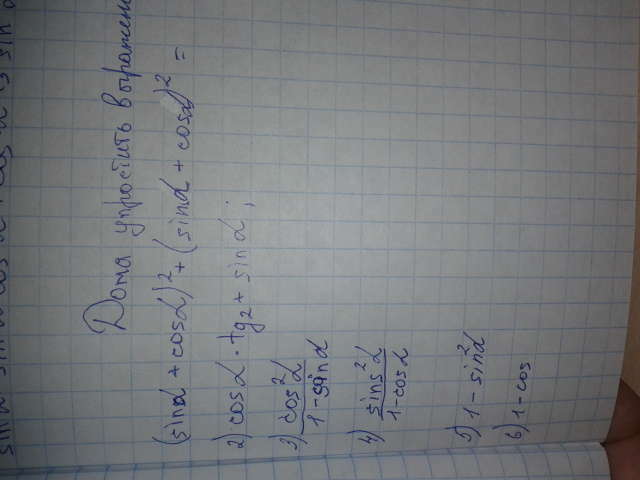 Дома упростить выражен
(sinα + cosα)² + (sinα + cosα)² =
2) cosα · tg₂ + sinα ;
3) cos²α
1 - sinα
4) sins²α
1 - cosα
5) 1 - sin²α
6) 1 - cos